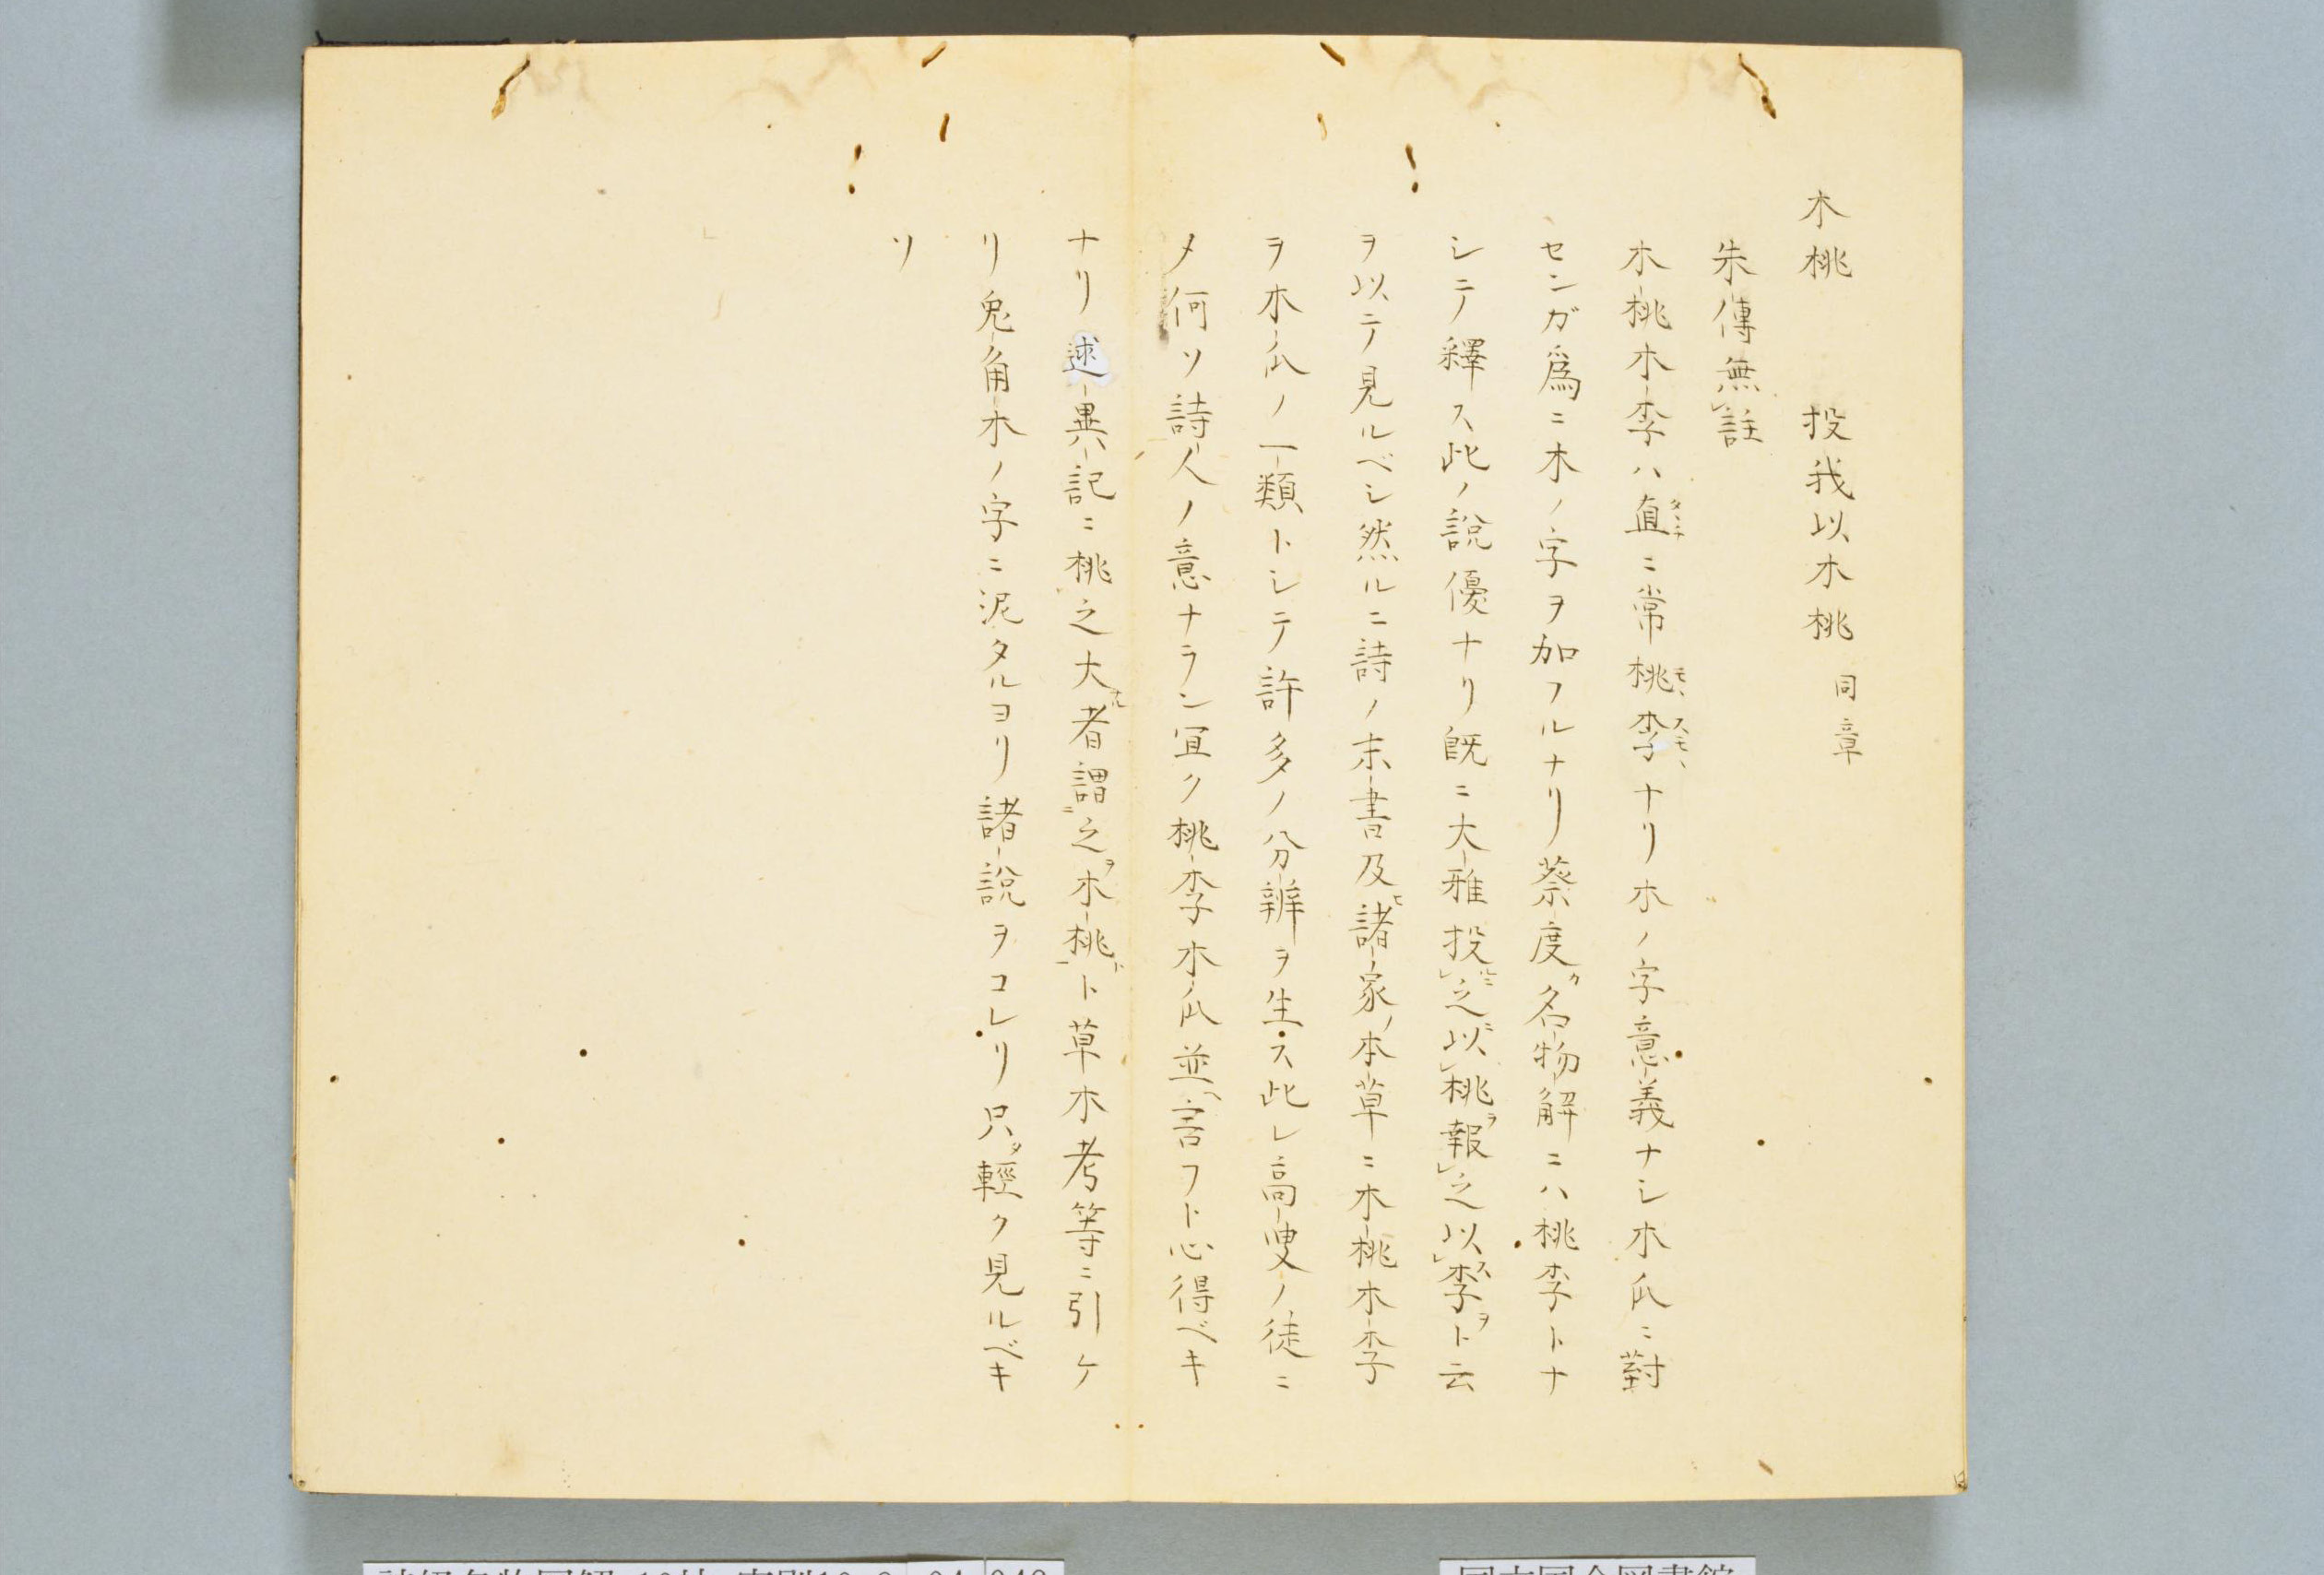 木桃　　投我以木桃 同章
朱傳無註
木桃木李ハ直ニ常桃李ナリ木ノ字意義ナシ木瓜ニ對
センガ爲ニ木ノ字ヲ加フルナリ蔡度名物解ニハ桃李トナ
シテ釋ス此ノ說優ナリ既ニ大雅投之以桃報之以李ト云
ヲ以テ見ルベシ然ルニ詩ノ末書及諸家ノ本草ニ木桃木李
ヲ木瓜ノ一類トシテ許多ノ分辨ヲ生ス此レ高叟ノ徒ニ
メ何ソ詩人ノ意ナラン宜ク桃李木瓜並言フト心得ベキ
ナリ述異記ニ桃之大者謂之木桃ト草木考等ニ引ケ
リ兎角木ノ字ニ泥タルヨリ諸說ヲコレリ只輕ク見ルベキ
ソ